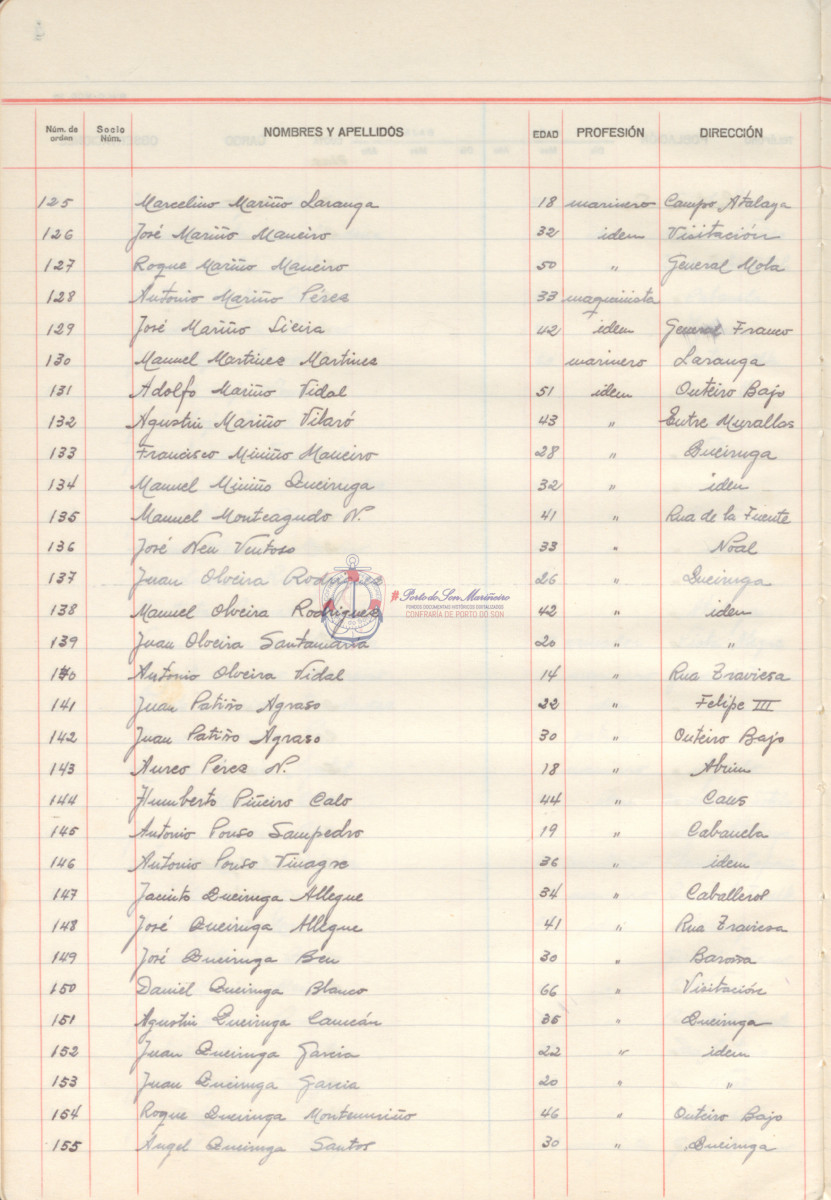 Núm. de orden Socio Núm. NOMBRES Y APELLIDOS EDAD PROFESIÓN DIRECCIÓN
125 Marcelino Mariño Laranga 18 marinero Campo Atalaya
126 José Mariño Maneiro 32 idem Visitación
127 Roque Mariño Maneiro 50 " General Mola
128 Antonio Mariño Pérez 33 maquinista
129 José Mariño Lieira 42 idem General Franco
130 Manuel Martinez Martinez marinero Laranga
131 Adolfo Mariño Vidal 51 idem Outeiro Bajo
132 Agustin Mariño Vilaró 43 " Entre Murallas
133 Francisco Miniño Maneiro 28 " Queiruga
134 Manuel Miniño Queiruga 32 " idem
135 Manuel Monteagudo N. 41 " Rua de la Fuente
136 José Neu Ventoso 33 " Noal
137 Juan Olveira Rodriguez 26 " Queiruga
138 Manuel Olveira Rodriguez 42 " idem
139 Juan Olveira Santamaria 20 " "
140 Antonio Olveira Vidal 14 " Rua Traviesa
141 Juan Patiño Agraso 22 " Felipe III
142 Juan Patiño Agraso 30 " Outeiro Bajo
143 Aureo Pérez N. 18 "
144 Humberto Piñeiro Calo 44 " Cans
145 Antonio Pouso Sampedro 19 " Cabancha
146 Antonio Pouso Vinagre 36 " idem
147 Jacinto Queiruga Allegue 34 " Caballerol
148 José Queiruga Allegue 41 " Rua Traviesa
149 José Queiruga Ben 30 " Baroña
150 Daniel Queiruga Blanco 66 " Visitación
151 Agustin Queiruga Camcán 35 " Queiruga
152 Juan Queiruga Garcia 22 " idem
153 Juan Queiruga Garcia 20 " "
154 Roque Queiruga Montemuiño 46 " Outeiro Bajo
155 Ángel Queiruga Santos 30 " Queiruga
#Porto do Son Mariñeiro
FONDOS DOCUMENTAIS HISTÓRICOS DIXITALIZADOS
CONFRARÍA DE PORTO DO SON